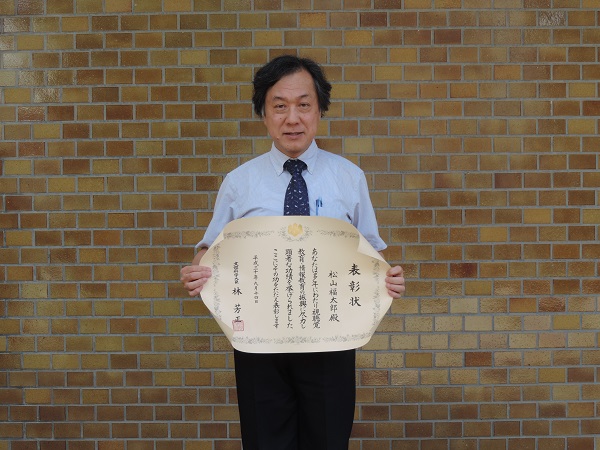 表彰状
松山福太郎殿
あなたは多年にわたり視聴覚
教育・情報教育の振興に尽力し
顕著な功績を挙げられました
ここにその功をたたえ表彰します
文部科学大臣 林 芳正